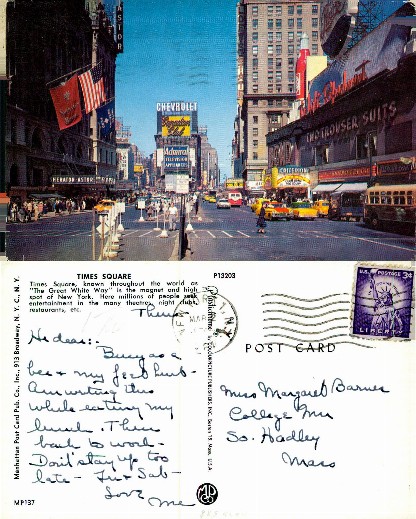 ASTOR
CHEVROLET
Admiral
TELEVISION
APPLIANCES
HOTEL ASTOR
CRITERION
TWO TROUSER SUITS
TIMES SQUARE
P13203
Times Square, known throughout the world as
"The Great White Way" is the magnet and high
spot of New York. Here millions of people seek
entertainment in the many theatres, night clubs,
restaurants, etc.
Manhattan Post Card Pub. Co., Inc., 913 Broadway, N. Y. C., N. Y.
Thurs
Hi dear:-
Busy as a
bee & my feet hurt-
Am writing this
while eating my
lunch. Then
back to work-
Don't stay up too
late - Fri & Sat-
Love
Me
MP137
N.Y.
MAR
U.S. POSTAGE 3¢
LIBERTY
POST CARD
Miss Margaret Barnes
College Inn
So. Hadley
Mass